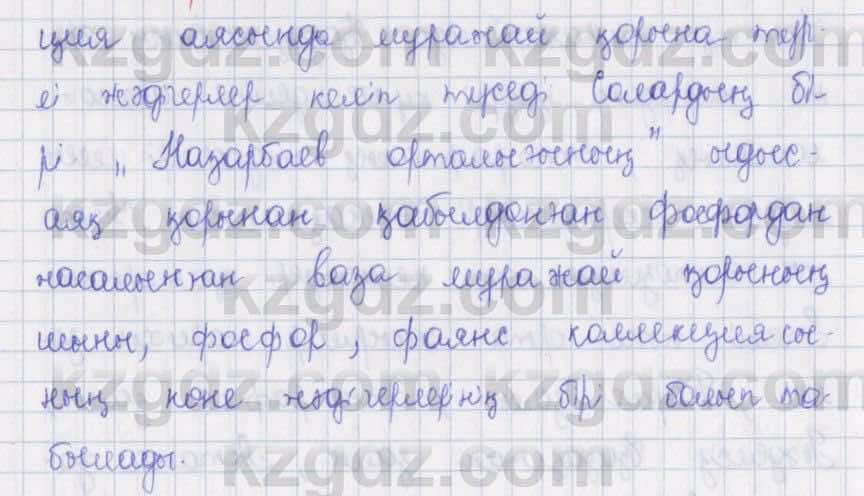 ция аясында мұражай қорына түр-
лі жәдігерлер келіп түседі Солардың бі-
рі „Назарбаев орталығының" ыдыс-
аяқ қорынан қабылданған фосфордан
жасалынған ваза мұражай қорының
шыны, фосфор, фаянс коллекциясы-
ның көне жәдігерлерінің бірі болып та-
былады.